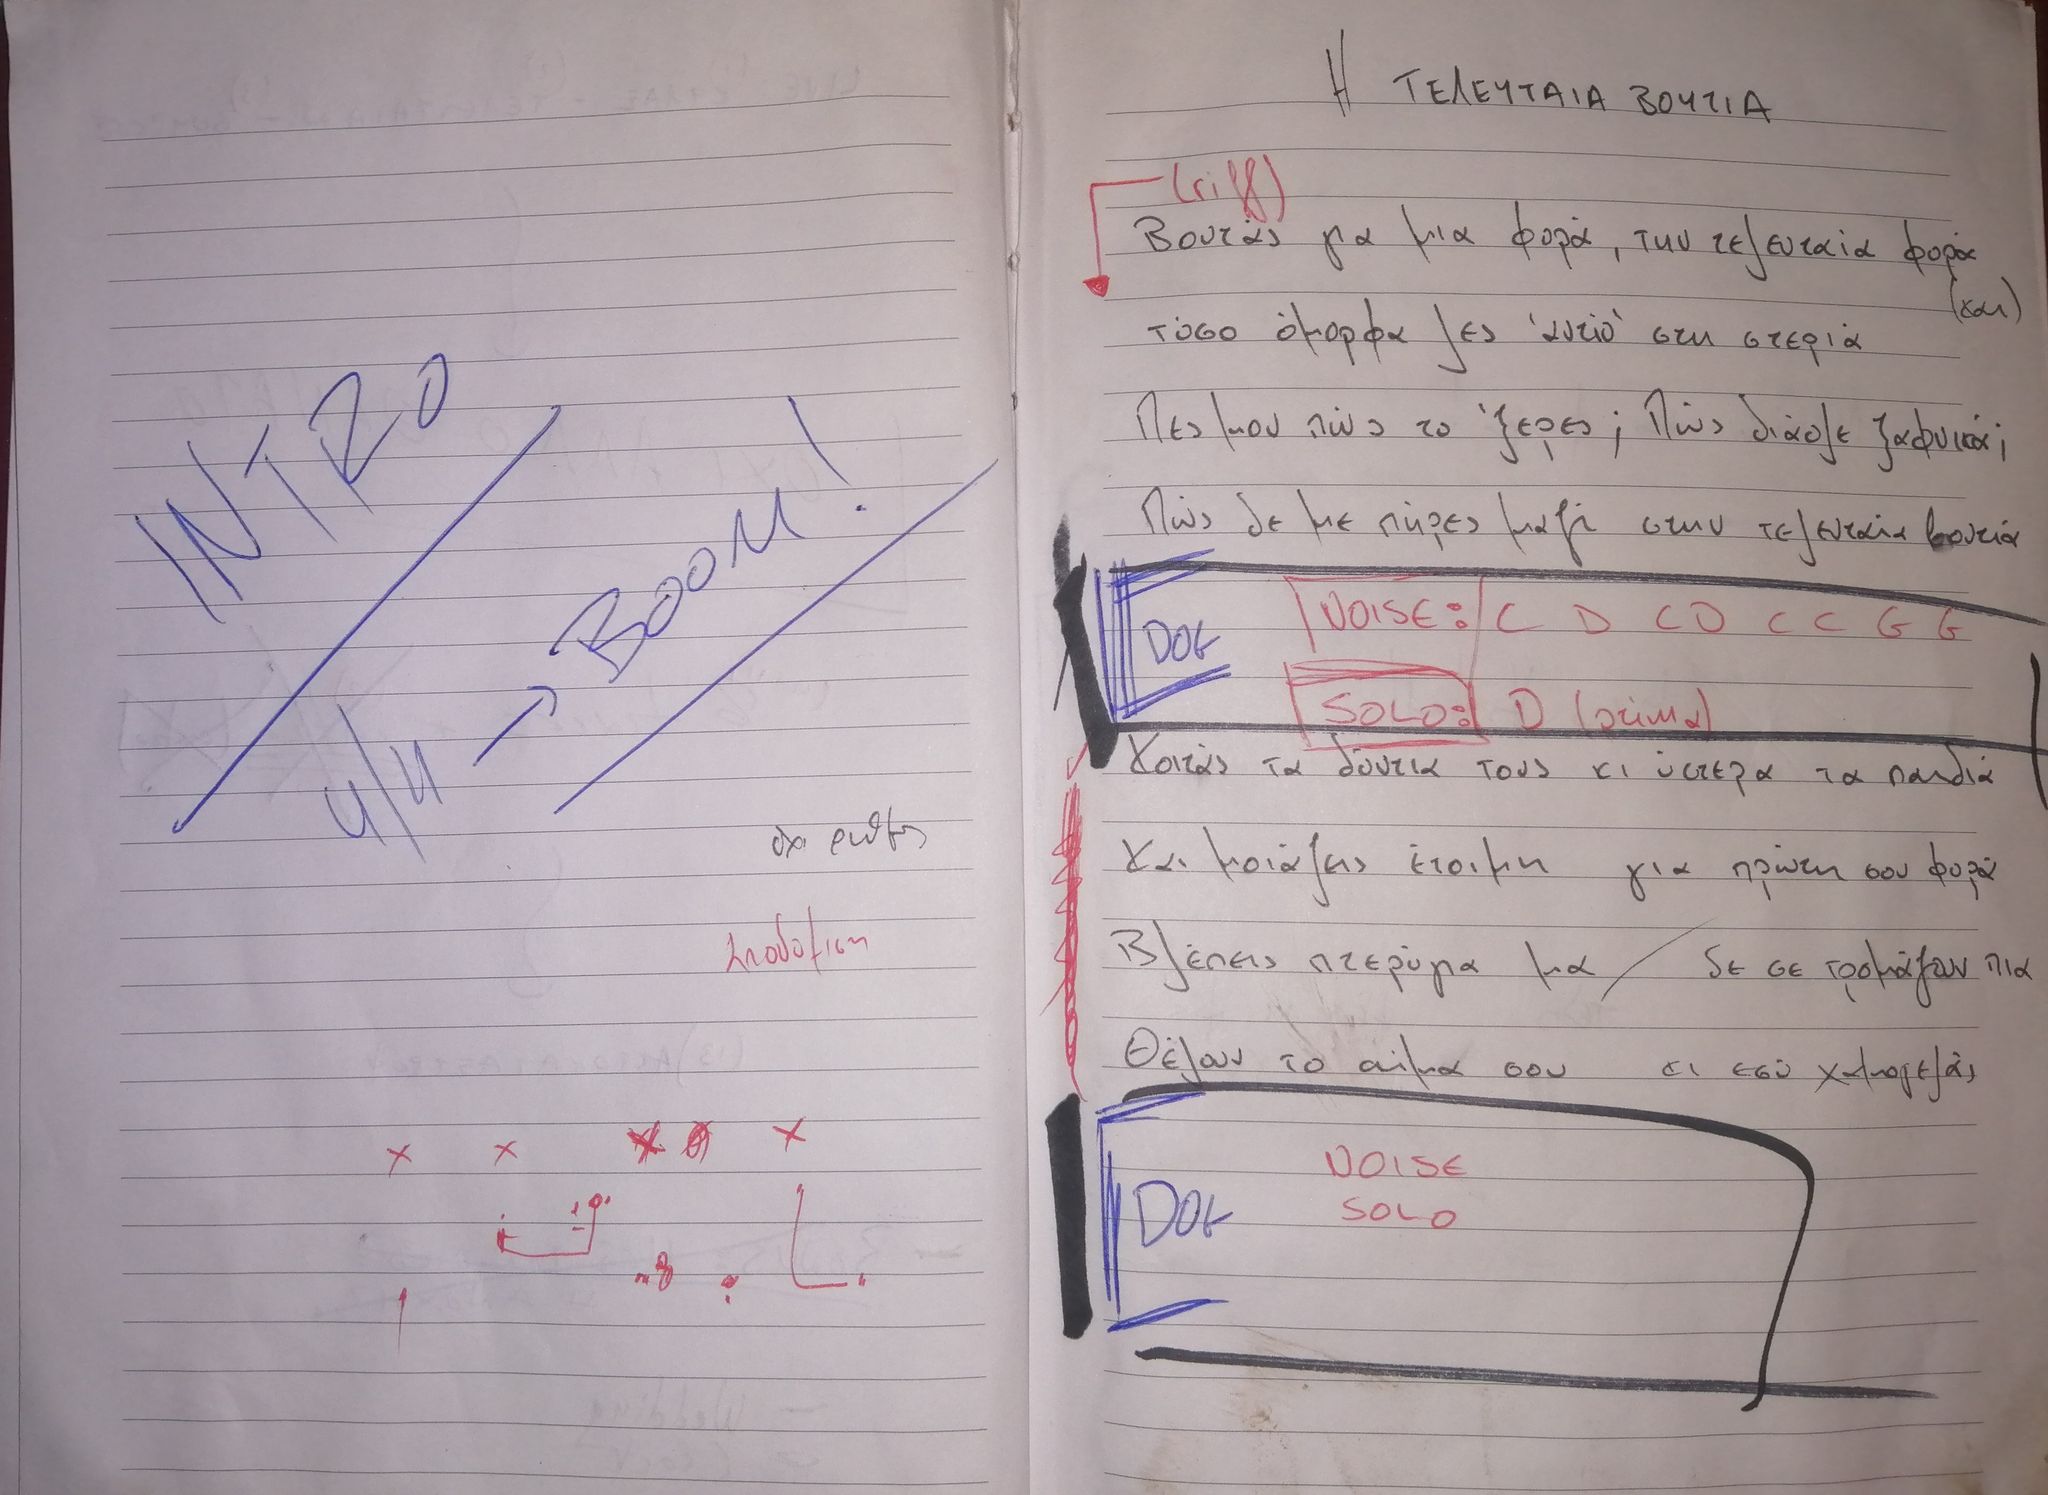 INTRO
4/4 → BOOM!
όχι ρυθμός
Η ΤΕΛΕΥΤΑΙΑ ΒΟΥΤΙΑ
(riff)
Βουτάς για μια φορά, την τελευταία φορά
(και)
τόσο όμορφα λες 'αντίο' στη στεριά
Πες μου πώς το 'ξερες; Πώς διάολε ξαφνικά;
Πώς δε με πήρες μαζί στην τελευταία βουτιά
DOG
NOISE: C D C D C C G G
SOLO: D (στίμα)
Κοιτάς τα δόντια τους κι ύστερα τα παιδιά
Και μοιάζεις έτοιμη για πρώτη σου φορά
Βλέπεις πτερύγια μα / δε σε τρομάζουν πια
Θέλουν το αίμα σου κι εσύ χαμογελάς
DOG
NOISE
SOLO